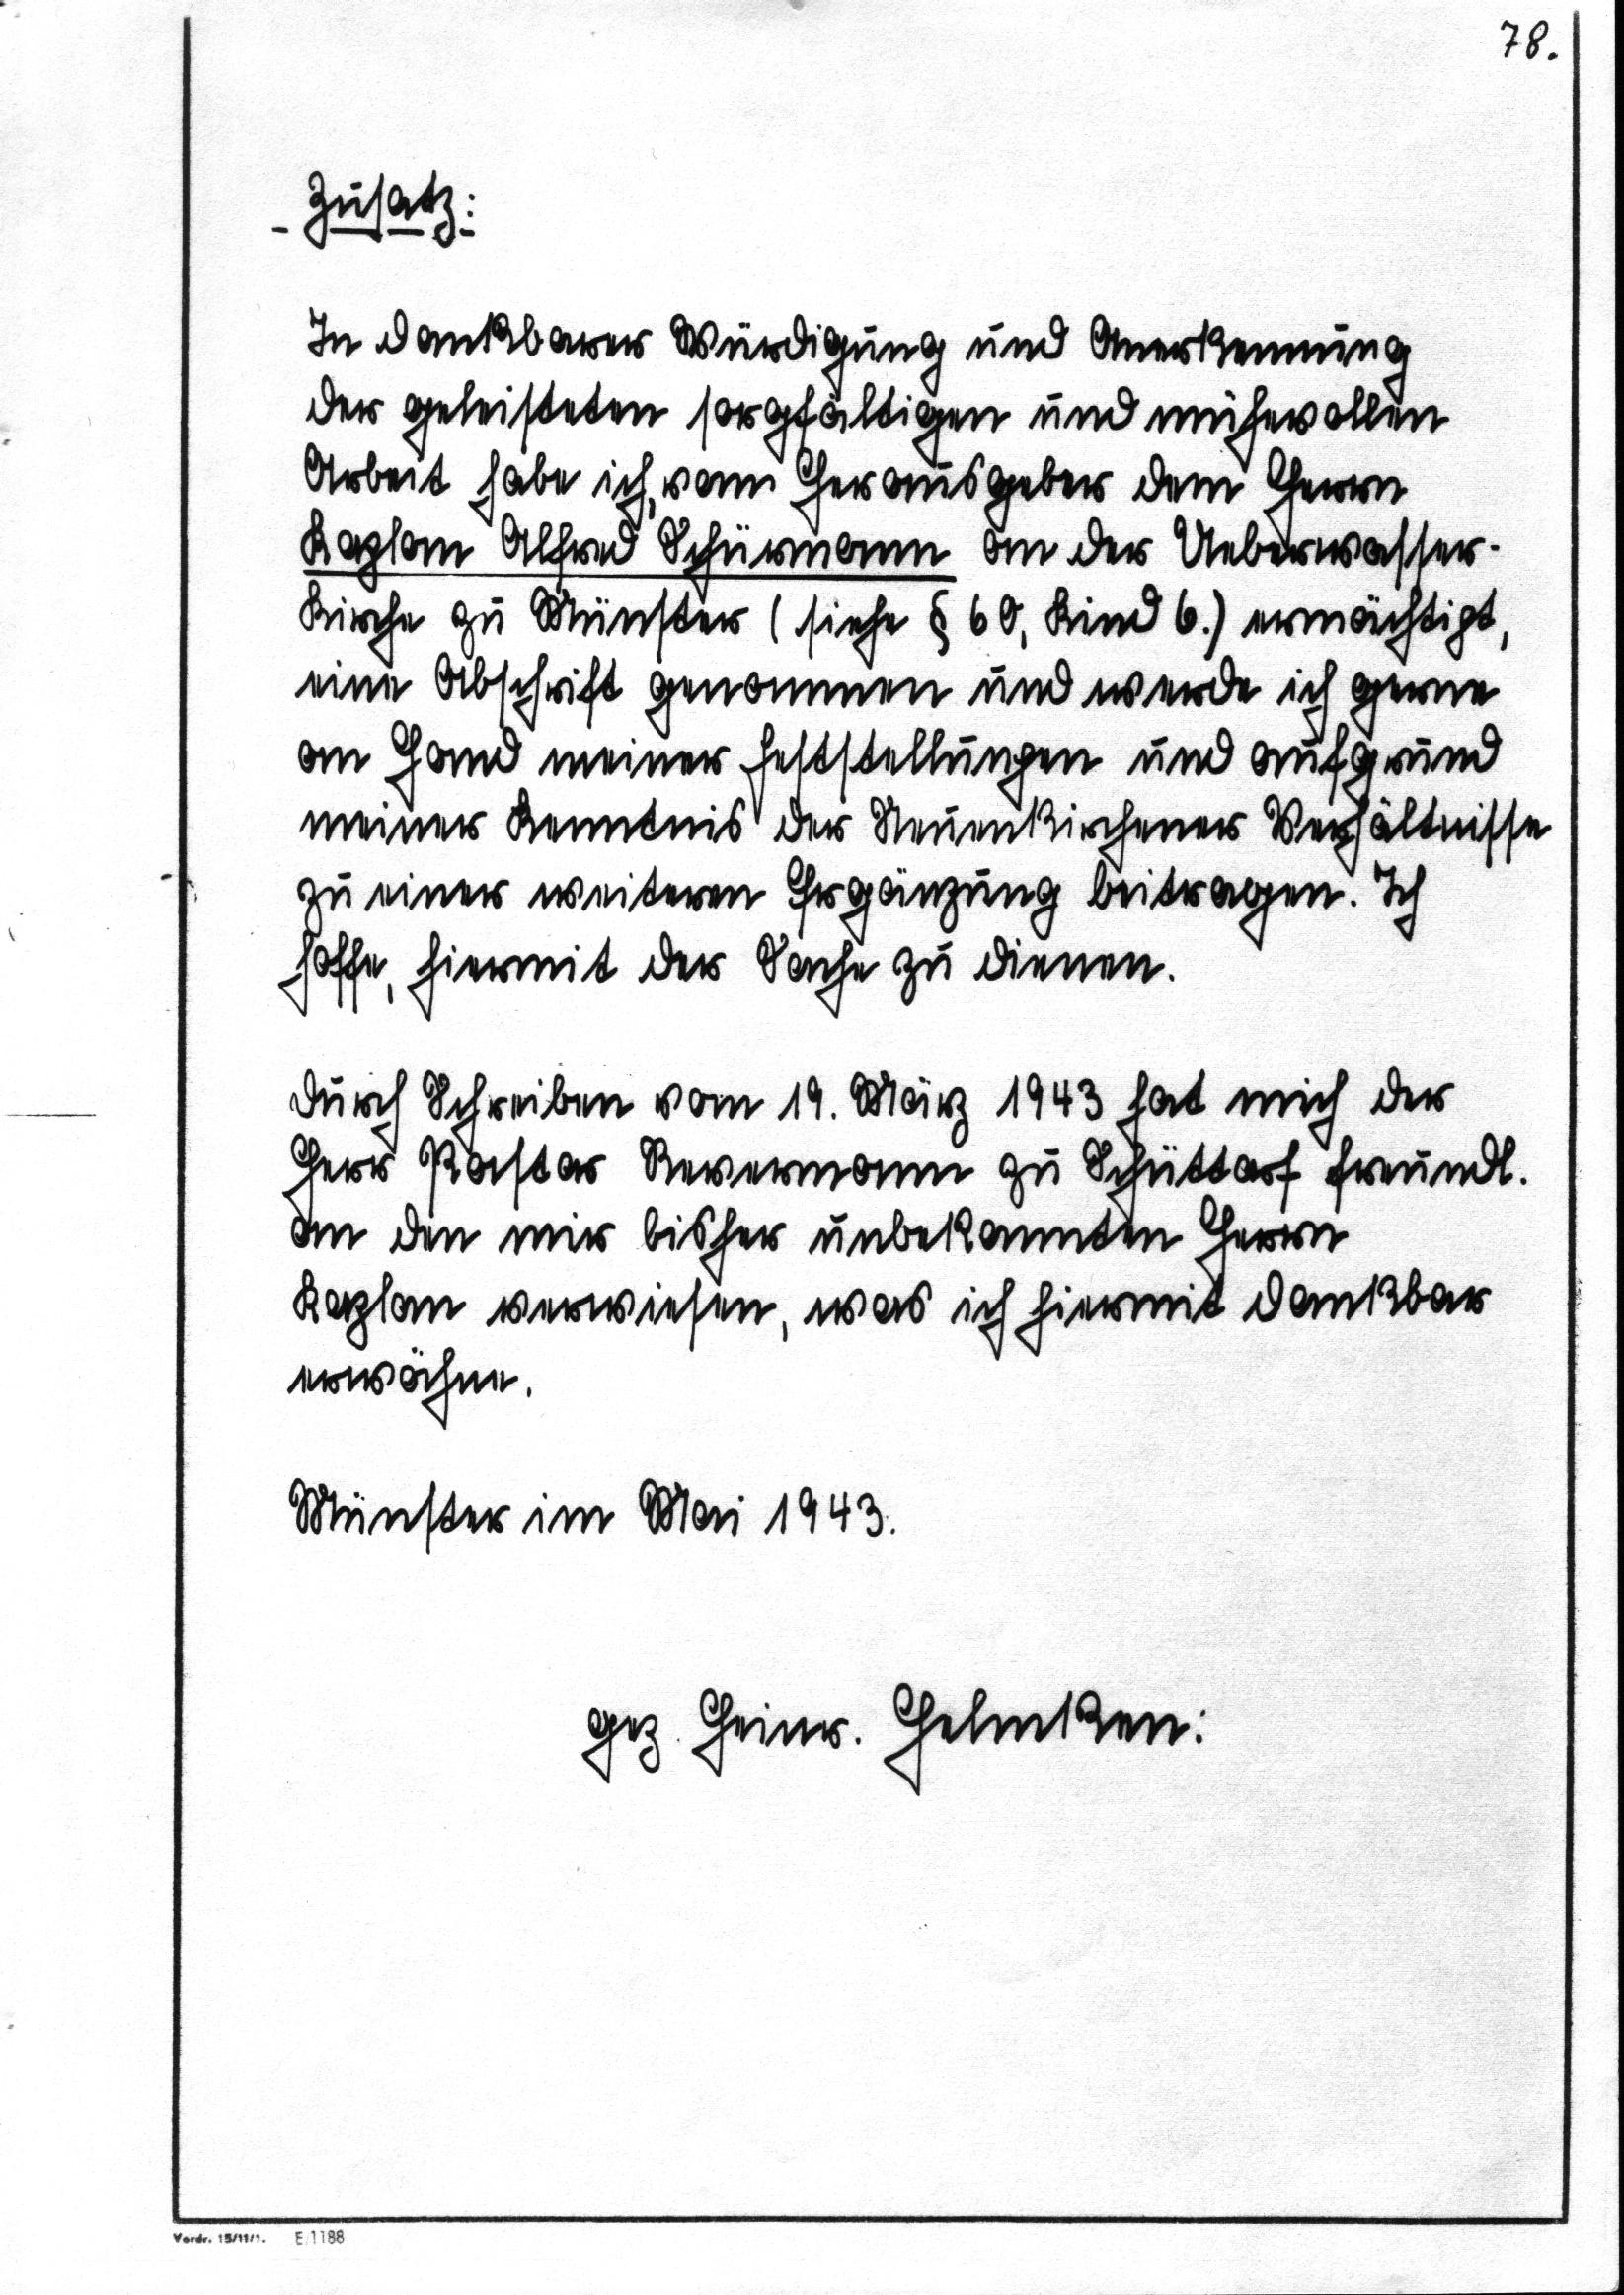 78.
Zusatz:
In dankbarer Würdigung und Anerkennung
der geleisteten sorgfältigen und mühevollen
Arbeit habe ich, vom Herausgeber dem Herrn
Kaplan Alfred Schürmann an der Ueberwasser-
Kirche zu Münster (siehe § 60, Kind 6.) ermächtigt,
eine Abschrift genommen und werde ich gerne
an Hand meiner Feststellungen und aufgrund
meiner Kenntnis der Neuenkirchener Verhältnisse
zu einer weiteren Ergänzung beitragen. Ich
hoffe, hiermit der Sache zu dienen.
Durch Schreiben vom 19. März 1943 hat mich der
Herr Pastor Revermann zu Schüttorf freundl.
an den mir bisher unbekannten Herrn
Kaplan verwiesen, was ich hiermit dankbar
erwähne.
Münster im Mai 1943.
gez. Heinr. Helmken:
Vordr. 15/11/1. E/1188